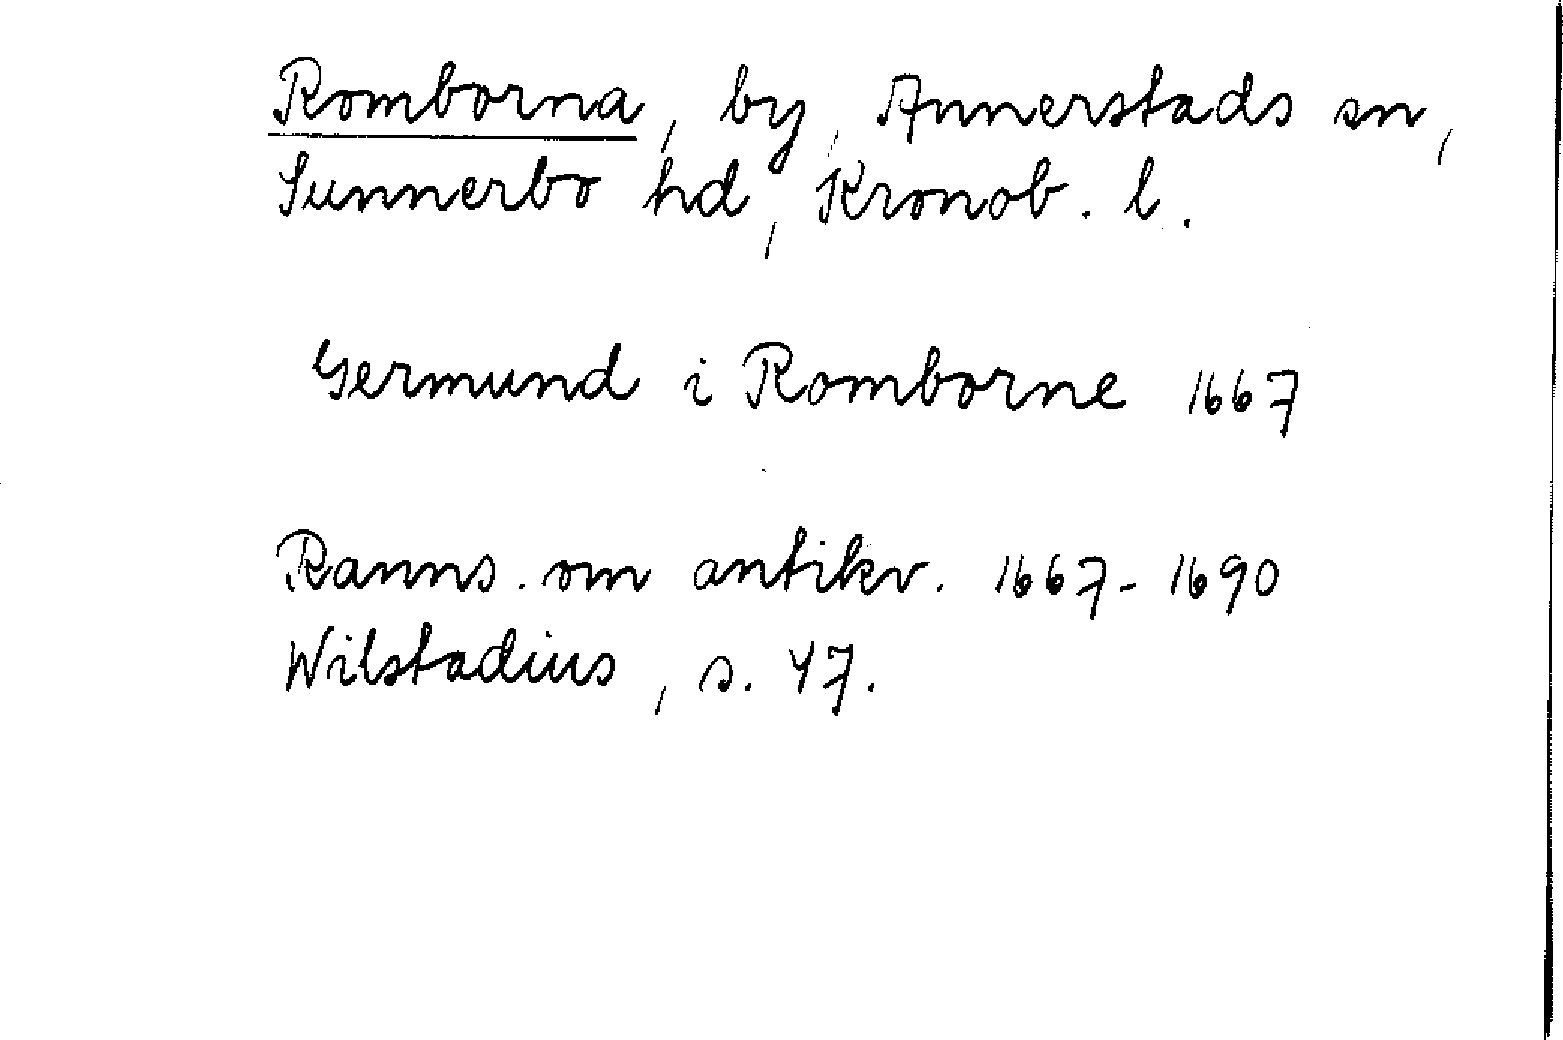 Romborna, by, Annerstads sn,
Sunnerbo hd, Kronob. l.
Germund i Romborne 1667
Ranns. om antikv. 1667-1690
Wilstadius, s. 47.